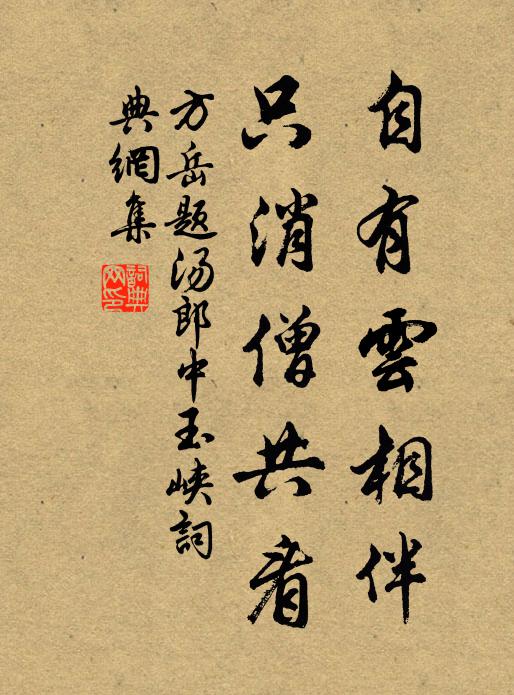 自有雲相伴
只消僧共看
方岳题汤郎中玉峡詞
典網集
詞典网印